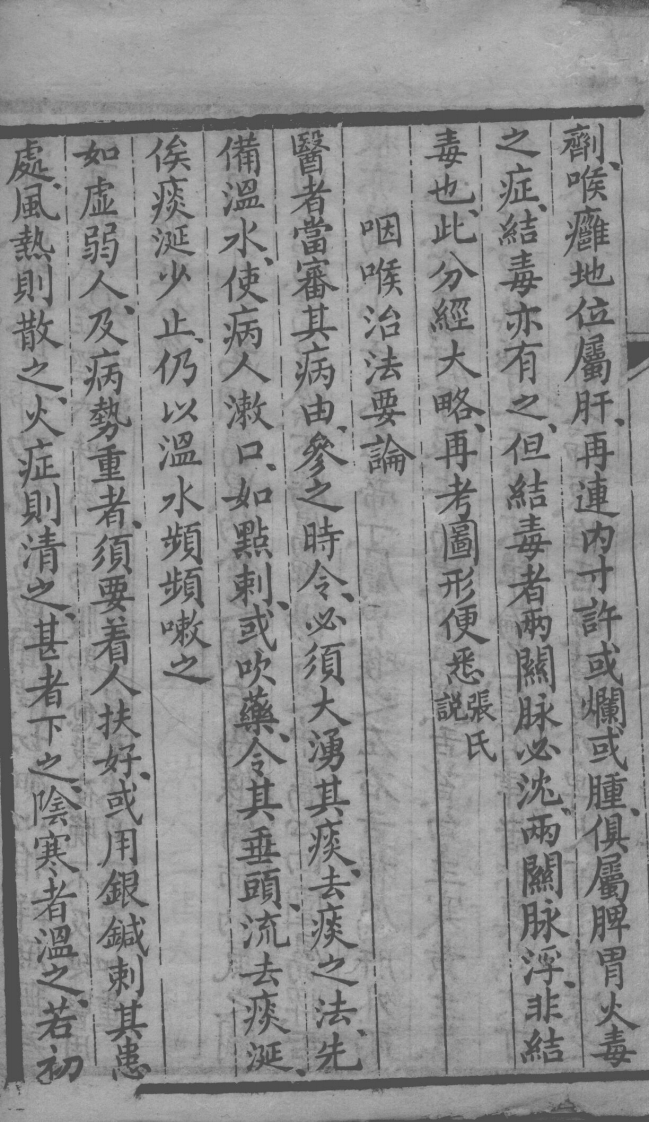 劑、喉癰地位屬肝、再連內寸許或爛或腫、俱屬脾胃火毒
之症、結毒亦有之、但結毒者兩關脉必沈、兩關脉浮、非結
毒也、此分經大略、再考圖形便悉張氏說
咽喉治法要論
醫者當審其病由、參之時令、必須大湧其痰、去痰之法、先
備溫水、使病人漱口、如點刺、或吹藥、令其垂頭、流去痰涎、
俟痰涎少止、仍以溫水頻頻嗽之
如虛弱人、及病勢重者、須要着人扶好、或用銀鍼刺其患
處、風熱則散之、火症則清之、甚者下之、陰寒者溫之、若初